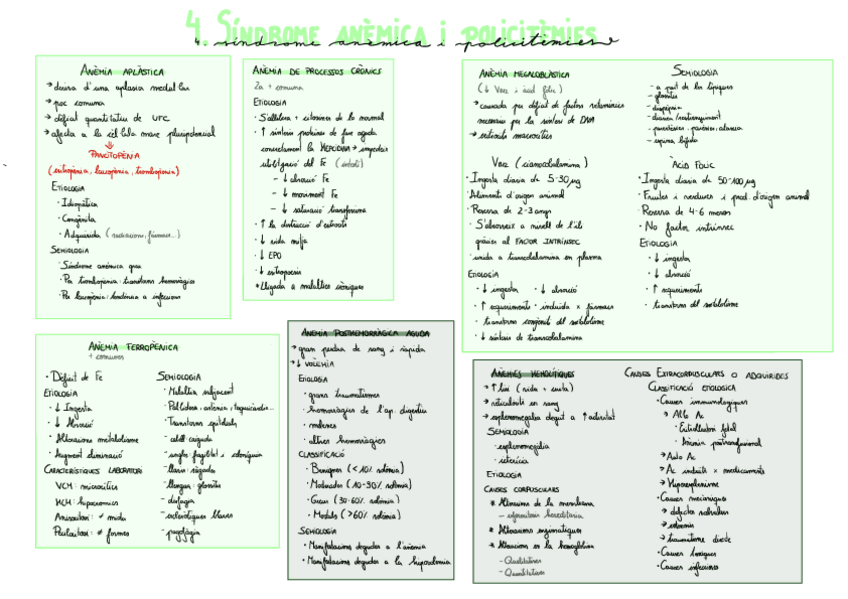 4. Síndrome anèmica i policitèmies
4. síndrome anèmica i policitèmies
Anèmia aplàstica
→ deriva d'una aplasia medul·lar
→ poc comuna
→ dèficit quantitatiu de UFC
→ afecta a la cèl·lula mare pluripotencial
Pancitopènia
(eritropènia, leucopènia, trombopènia)
Etiologia
· Idiopàtica
· Congènita
· Adquirida (radiacions, fàrmacs...)
Semiologia
· Síndrome anèmica greu
· Per trombopènia: transtorns hemoràgics
· Per leucopènia: tendència a infeccions
Anèmia de processos crònics
2a + comuna
Etiologia
· S'alliberen + citocines de lo normal
· ↑ síntesi proteïnes de fase aguda
concretament la HEPCIDINA →
utilització del Fe
- ↓ absorció Fe
- ↓ moviment Fe
- ↓ saturació transferrina
· ↑ la destrucció d'eritròcits
· ↓ vida mitja
· ↓ EPO
· ↓ eritropoesi
* Lligada a malalties cròniques
Anèmia megaloblàstica
(↓ VB12 i àcid fòlic)
→ causada per dèficit de factors vitamínics
necessaris per la síntesi de DNA
→ eritròcits macrocítics
Semiologia
- a part de les típiques
- glossitis
- dispèpsia
- diarrea/restrenyiment
- espina bífida
VB12 (cianocobalamina)
· Ingesta diaria de 5-30 µg
· Aliments d'origen animal
· Reserva de 2-3 anys
· S'absorveix a nivell de l'ili
gràcies al FACTOR INTRÍNSEC
· unida a transcobalamina en plasma
Etiologia
· ↓ ingesta · ↓ absorció
· ↑ requeriments · induïda x fàrmacs
· transtorns congènits del metabolisme
· ↓ síntesi de transcobalamina
Àcid Fòlic
· Ingesta diaria de 50-100 µg
· Fruites i verdures i prod. d'origen animal
· Reserva de 4-6 mesos
· No factor intrínsec
Etiologia
· ↓ ingesta
· ↓ absorció
· ↑ requeriments
· transtorns del metabolisme
Anèmia Ferropènica
+ comunes
· Dèficit de Fe
Etiologia
· ↓ Ingesta
· ↓ Absorció
· Alteracions metabolisme
· Augment eliminació
Característiques laboratori
VCM: microcítics
HCM: hipocromics
Anisocitosi: ≠ mida
Poiquilocitosi: ≠ formes
Semiologia
· Malaltia subjacent
· Pal·lidesa, astènia, taquicàrdia...
· Transtorns epitelials
- cabell caiguda
- ungles fragilitat i coiloníquia
- llavis: ràgades
- llengua: glossitis
- disfàgia
- escleròtiques blaves
- pagofàgia
Anèmia Posthemorràgica aguda
→ gran pèrdua de sang i ràpida
→ ↓ volèmia
Etiologia
· grans traumatismes
· hemorràgies de l'ap. digestiu
· melenes
· altres hemorràgies
Classificació
· Benignes (<10% volèmia)
· Moderades (10-30% volèmia)
· Greus (30-60% volèmia)
· Mortals (>60% volèmia)
Semiologia
· Manifestacions degudes a l'anèmia
· Manifestacions degudes a la hipovolèmia
Anèmies hemolítiques
→ ↑ lisi (vida + curta)
→ reticulocits en sang
→ esplenomegàlia degut a ↑ activitat
Semiologia
· esplenomegàlia
· icterícia
Etiologia
Causes corpusculars
* Alteracions de la membrana
- esferocitosi hereditària
* Alteracions enzimàtiques
* Alteracions en la hemoglobina
- Qualitatives
- Quantitatives
Causes Extracorpusculars o adquirides
Classificació etiològica
· Causes immunològiques
→ Al·lo Ac
· Eritroblastosi fetal
· Anèmia postransfusional
→ Auto Ac
→ Ac induïts x medicaments
→ Hiperesplenisme
· Causes mecàniques
→ defectes valvulars
→ traumatisme directe
· Causes tòxiques
· Causes infeccioses